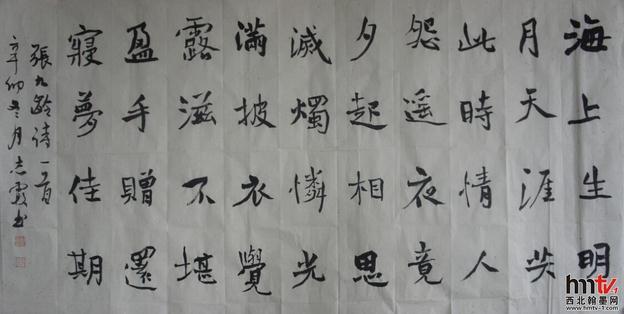 海上生明
月天涯共
此時情人
怨遥夜竟
夕起相思
滅燭憐光
滿披衣覺
露滋不堪
盈手贈還
寢夢佳期
張九齡詩一首
辛卯冬月志霞书
hmtv-1
西北翰墨网
www.hmtv-1.com